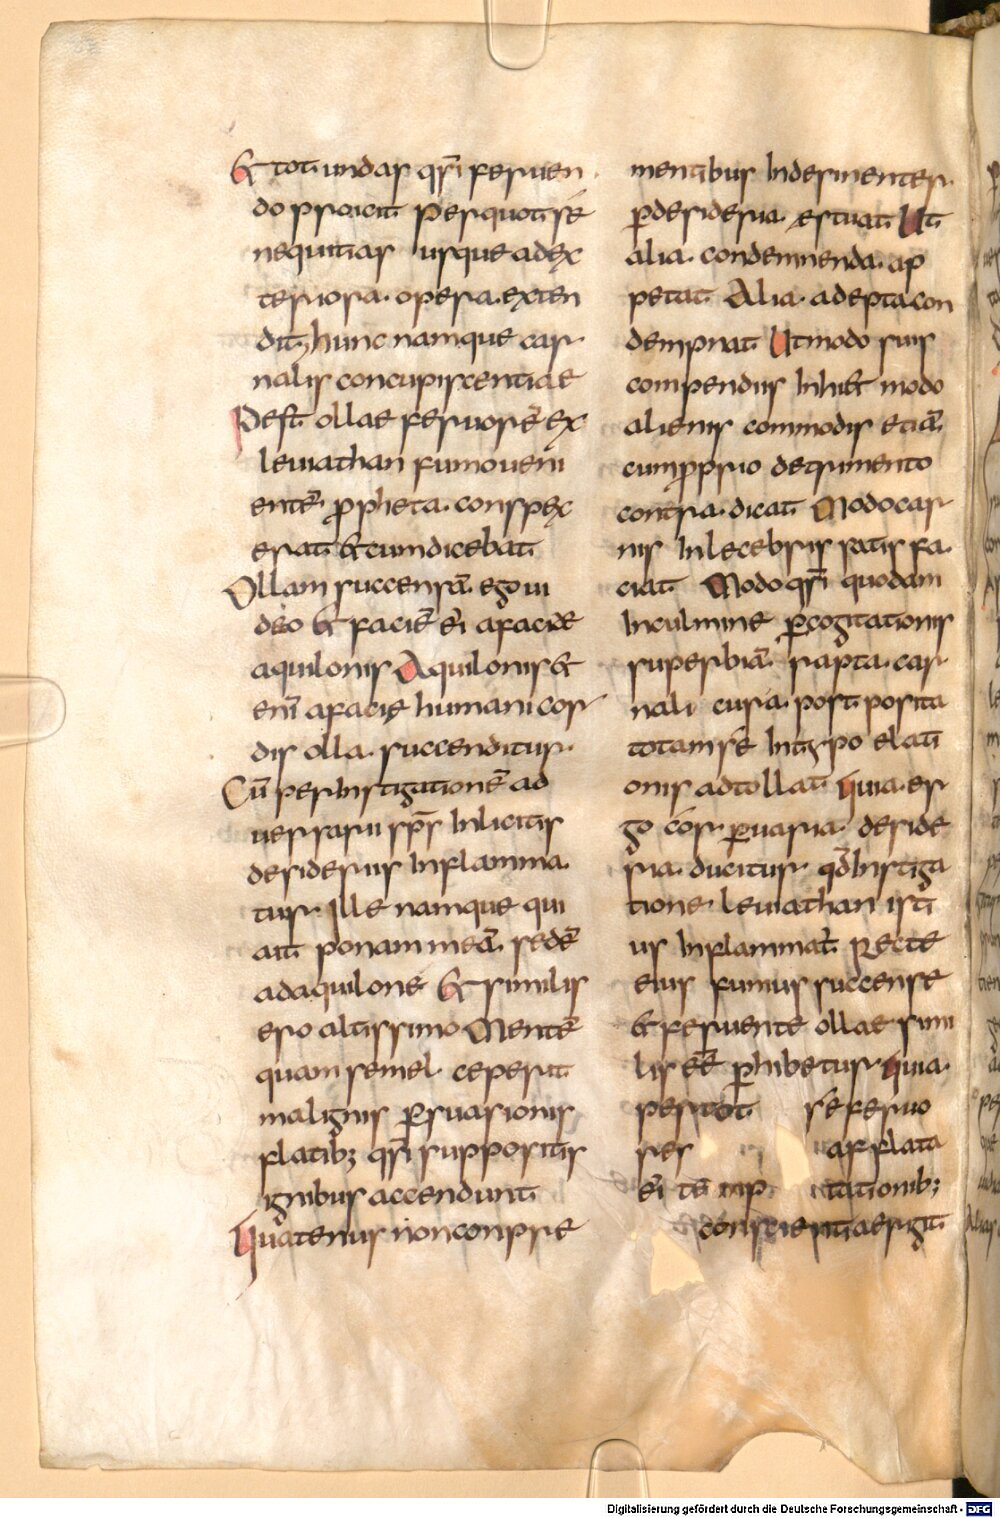 & tot undas qsi feruen
do proicit per quot se
nequitias usque ad ex
teriora. opera. exten
dit, hunc namque car
nalis concupiscentiae
Pest ollae feruorē ex
leuiathan fumo ueni
entē ppheta. conspex
erat & cum dicebat
Ollam succensā. ego ui
deo & faciē ei a facie
aquilonis Aquilonis &
eni a facie humani cor
dis olla. succenditur.
Cū per instigationē ad
uersarii sps inlicitis
desideriis inflamma
tur. Ille namque qui
ait ponam meā. sedē
ad aquilone & similis
ero altissimo Mentē
quam semel. ceperit
malignis psuasionis
flatib; qsi suppositis
ignibus accendunt
Quatenus non con prae
mentibus Indesinenter.
p desideria. estuat Ut
alia. condemnenda. ap
petat Alia. adepta con
dempnat Ut modo suis
compendiis Inhi& modo
alienis commodis etiā
cum pprio detrimento
contra. dicat Modo car
nis Inlecebris satis fa.
ciat Modo qsi quodam
In culmine p cogitationis
superbiā. rapta. car
nali cura. post posita
totam se In tipo elati
onis adtollat Quia. er
go cor. p uaria. deside
ria. ducitur. qd Instiga
tione. leuiathan isti
us Inflammat Recte
eius fumus succense
& feruente ollae simi
lis eē phibetur. quia.
per tot se feruo
res afflata
ei tationib;
conscientia erigit